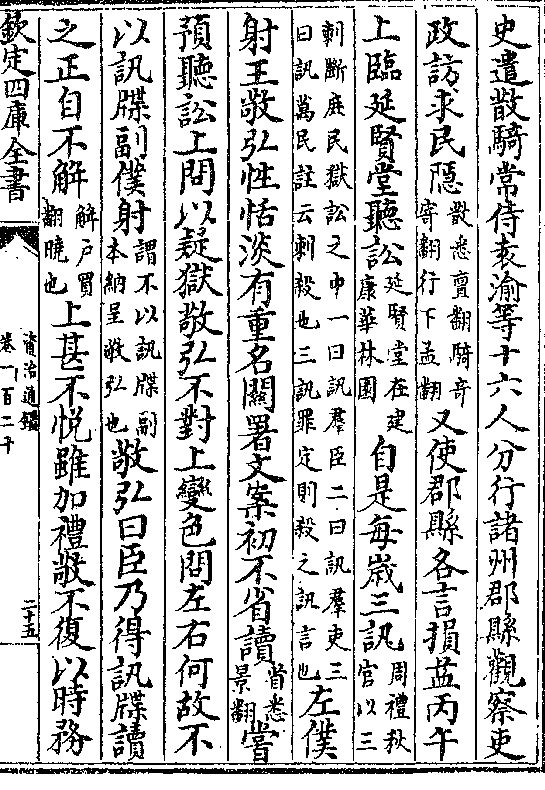 史遣散騎常侍袁渝等十六人分行諸州郡縣觀察吏
政訪求民隱散悉亶翻騎奇寄翻行下孟翻又使郡縣各言損益丙午
上臨延賢堂聽訟延賢堂在建康華林園自是每歲三訊周禮秋官以三
刺斷庶民獄訟之中一曰訊羣臣二曰訊羣吏三曰訊萬民註云刺殺也三訊罪定則殺之訊言也左僕
射王敬弘性恬淡有重名關署文案初不省讀省悉景翻嘗
預聽訟上問以疑獄敬弘不對上變色問左右何故不
以訊牒副僕射謂不以訊牒副本納呈敬弘也敬弘曰臣乃得訊牒讀
之正自不解解戶買翻曉也上甚不悅雖加禮敬不復以時務
欽定四庫全書
資治通鑑
卷一百二十
二十五